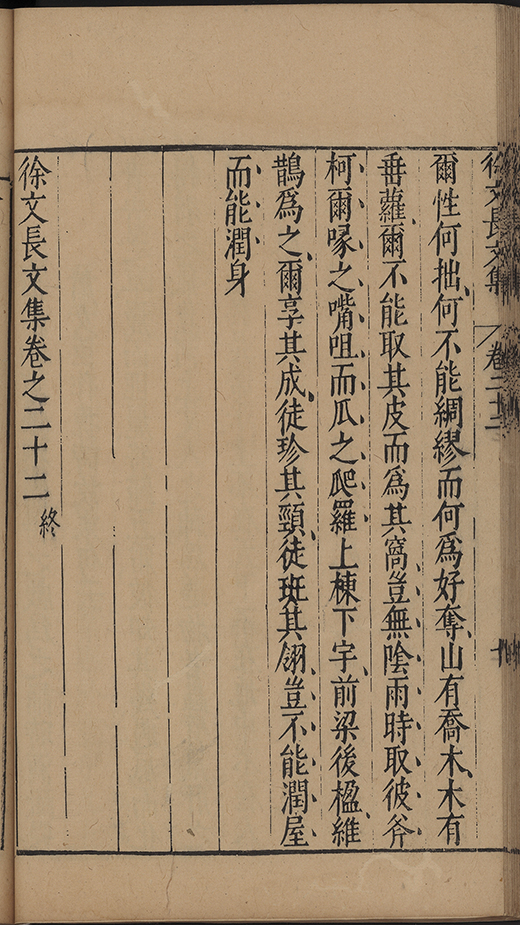 徐文長文集 卷二十二
爾性何拙何不能綢繆而何為好奪山有喬木木有
垂蘿爾不能取其皮而為其窩豈無陰雨時取彼斧
柯爾啄之嘴咀而瓜之爬羅上棟下宇前梁後楹維
鵲為之爾享其成徒珍其頸徒班其翎豈不能潤屋
而能潤身
徐文長文集卷之二十二 終